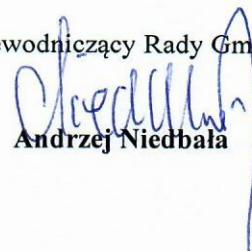 ewodniczący Rady Gm
Andrzej Niedbała